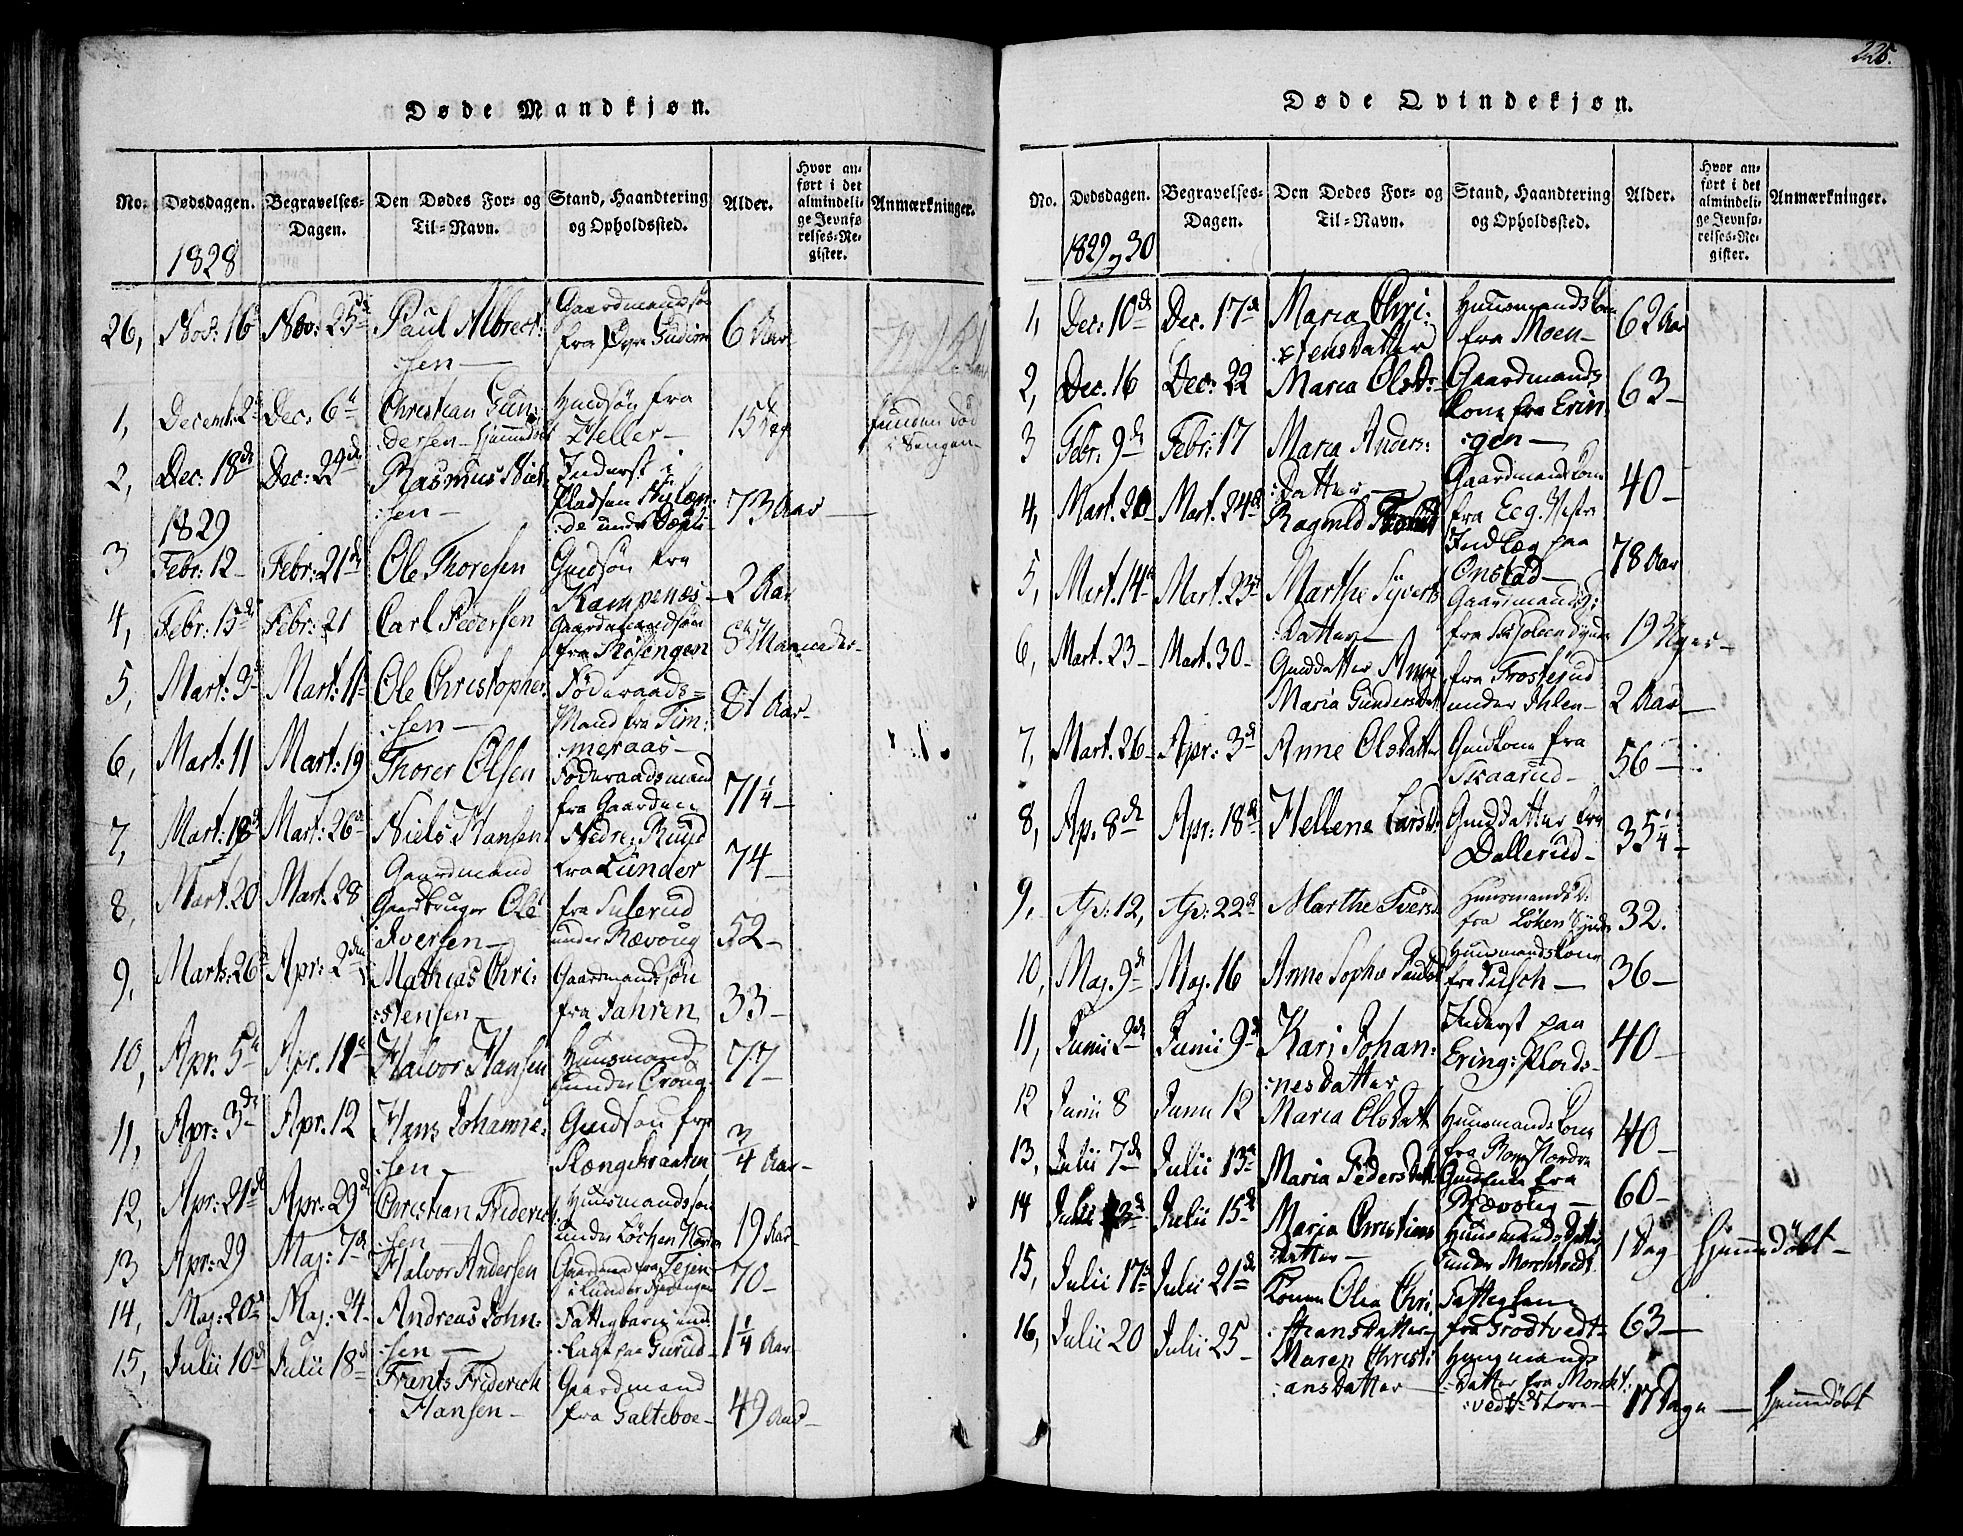 Døde Mandkjøn.
No. Dødsdagen. Begravelses-Dagen. Den Dødes For- og Til-Navn. Stand, Haandtering og Opholdssted. Alder. Hvor anført i det almindelige Jevnførelses-Register. Anmærkninger.
1828
26, Nov: 16 Nov: 25de Paul Albrect:
:sen — Gaardmandssøn
fra Øvre Gudim 6 Aar
1, Decemb: 2 Dec: 6te Christian Gun:
dersen — hjemmedøbt Gmdsøn fra
Heller — 15 Dag funden død
i Sengen —
2, Dec: 18de Dec: 22de Rasmus Niel:
:sen — Inderst i
Pladsen 73 Aar —
1829
3 Febr: 12 — Febr: 21de Ole Thoresen Gmdsøn fra
Kampenæs — 2 Aar
4, Febr: 15de Febr: 21 Carl Pedersen Gaardmandssøn
fra 8te Maaneder —
5, Mart: 3 Mart: 11 Ole Christopher:
:sen — Føderaads-
Mand fra Tim:
:meraas — 81 Aar —
6, Mart: 11 Mart: 19 Thorer Olsen Føderaadsmand
fra Gaarden
Nedre: Ruud 71 1/4 —
7, Mart: 18de Mart: 26de Niels Hansen
Gaardmand fra Lunder 74 —
8, Mart. 20 Mart. 28 Gaardbruger Ole
Iversen — fra
under Rævoug 52 —
9, Marts: 26 Apr: 2den Mathias Chri:
:stensen — Gaardmandssøn
fra Jahren 33 —
10, Apr. 5te Apr. 11te Halvor Hansen Huusmand
under 77 —
11, Apr: 3de Apr. 12 Hans Johanne:
:sen — Gmdsøn fra
3/4 Aar —
12, Apr: 21de Apr: 29de Christian Friderich:
:sen Huusmandssøn
under Løchen Nordre 19 Aar —
13 Apr: 29 Maj: 7de Halvor Andersen Gaardmd fra
70 —
14, Maj: 20de Maj: 24 Andreas John:
:sen — Fattigbarn ind:
:lagt paa Gurud — 1 1/4 Aar —
15, Julii 10de Julii 18de Frents Friderich
Hansen — Gaardmand
fra Galteboe — 49 Aar —
225.
Døde Qvindekjøn.
No. Dødsdagen. Begravelses-Dagen. Den Dødes For- og Til-Navn. Stand, Haandtering og Opholdssted. Alder. Hvor anført i det almindelige Jevnførelses-Register. Anmærkninger.
1829 og 30
1, Dec: 10de Dec. 17de Maria Chri:
:stensdatter Huusmandskone
fra Moen — 62 Aar
2, Dec. 16 Dec: 22 Maria Olsd: Gaardmands
kone fra Erin
:gen — 63 —
3 Febr: 9de Febr: 17 Maria Anders:
:datter — Gaardmandskone
fra Eeg Vestre 40 —
4, Mart. 20 Mart. 24de Ragnild Indlæg paa
Onstad — 78 Aar
5, Mart. 14de Mart. 23de Marthe Syverts
:datter — Gaardmandsd:
fra 19 Uger —
6, Mart. 23 — Mart. 30 — Gmddatter Anne
Maria Gundersdat fra Frosterud
under Ihlen — 2 Aar —
7, Mart. 26 — Apr: 3de Anne Olsdatter Gmdkone fra
Skaarud — 56 —
8, Ap. 8de Apr: 18de Hellene Larsd: Gmddatter fra
Dallerud — 35 1/4 —
9, Ap: 12, Ap: 22de Marthe Iversd Huusmandsd:
fra Løken Syndre 32.
10, Maj. 9de Maj. 16 Anne Sophie Huusmandskone
fra Tusch — 36 —
11, Junii 2de Junii 9de Kari Johan:
:nesdatter Inderst paa
Ering: Plads — 40 —
12 Junii 8 Junii 12 Maria Olsdatt Huusmandskone
fra Nordre 40 —
13, Julii 7de Julii 13de Maria Pedersdatt Gmdkone fra
Rævoug — 60 —
14 Julii 13de Julii 15de Maria Christians
datter — Huusmandsdatter
under Morchtvedt 1 Dag hjemmedøbt —
15, Julii 17de Julii 21de Konen Olia Chri
:stiansdatter — Fattiglem
fra Grodtvedt — 63 —
16, Julii 20 Julii 25 — Maren Christi
:ansdatter — Huusmands
:datter fra Morcht:
:vedt Store — 17 Dage — hjemmedøbt